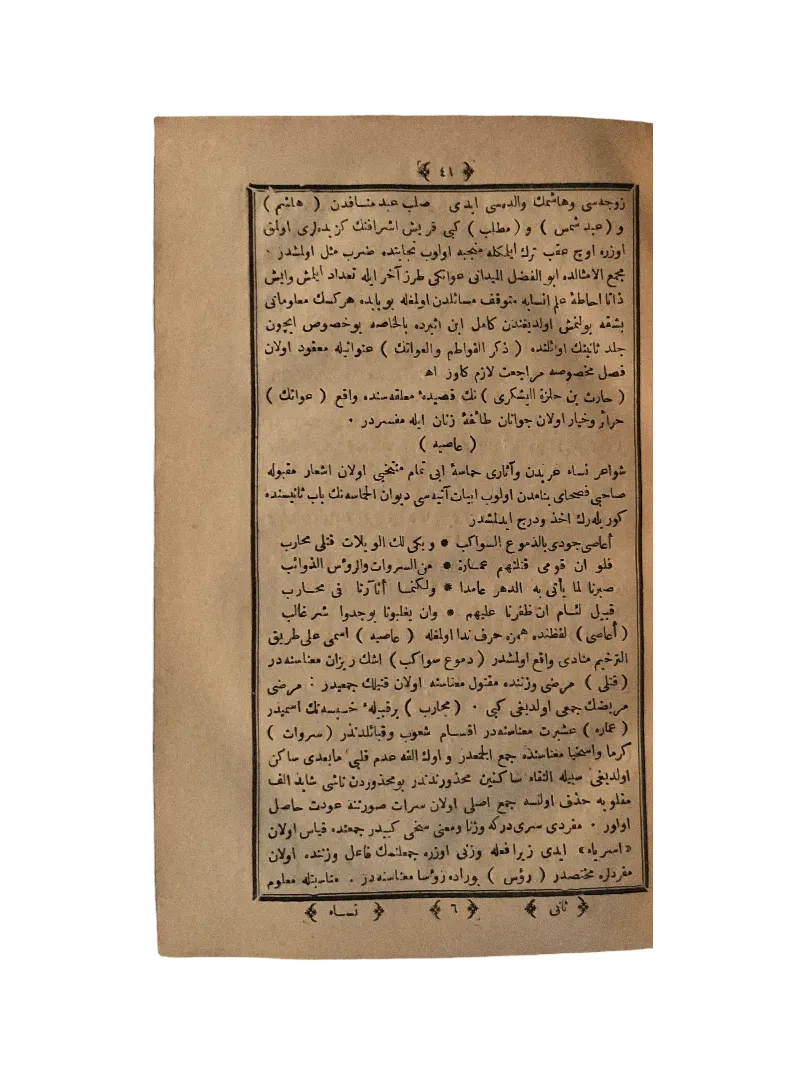 ﴿ ٤١ ﴾
زوجه‌سی وهاشمك والده‌سی ایدی صلب عبد منافدن ( هاشم )
و ( عبد شمس ) و ( مطلب ) كبی قریش اشرافنك كزیده‌لری اولمق
اوزره اوچ عقب ترك ایلمكله منجبه اولوب نجابتده ضرب مثل اولمشدر ·
مجمع الامثالده ابو الفضل المیدانی عواتكی طرز آخر ایله تعداد ایلمش وایش
ذاتا احاطهٔ علم انسابه متوقف مسائلدن اولمغله بو بابده هركسك معلوماتی
بشقه بولنمش اولدیغندن كامل ابن اثیرده بالخاصه بوخصوص ایچون
جلد ثانینك اوائلنده ( ذكر الفواطم والعواتك ) عنوانیله معقود اولان
فصل مخصوصه مراجعت لازم كلور اھ
( حارث بن حلزة الیشكری ) نك قصیدهٔ معلقه‌سنده واقع ( عواتك )
حرائر وخیار اولان جوانان طائفهٔ زنان ایله مفسردر ·
( عاصیه )
شواعر نساء عربدن وآثاری حماسهٔ ابی تمام منتخبی اولان اشعار مقبوله
صاحبی فصحای بنامدن اولوب ابیات آتیه‌سی دیوان الحماسه‌نك باب ثانیسنده
كوریله‌رك اخذ ودرج ایدلمشدر
أعاصی جودی بالدموع السواكب * و بكی لك الویلات قتلی محارب
فلو ان قومی قتلتهم عمارة * من السروات والرؤس الذوائب
صبرنا لما یأتی به الدهر عامدا * ولكنما أثآرنا فی محارب
قبیل لئام ان ظفرنا علیهم * وان یغلبونا یوجدوا شر غالب
( أعاصی ) لفظنده همزه حرف ندا اولمغله ( عاصیه ) اسمی علی طریق
الترخیم منادی واقع اولمشدر ( دموع سواكب ) اشك ریزان معناسنه‌در
( قتلی ) مرضی وزننده مقتول معناسنه اولان قتیلك جمعیدر : مرضی
مریضك جمعی اولدیغی كبی · ( محارب ) بر قبیلهٔ خسیسه‌نك اسمیدر
( عماره ) عشیرت معناسنه‌در اقسام شعوب وقبائلدندر ( سروات )
كرما واسخیا معناسنده جمع الجمعدر و اوك الفه عدم قلبی مابعدی ساكن
اولدیغی سبیله التقاء ساكنین محذورندندر بومحذوردن ناشی شاید الف
مقلوبه حذف اولنسه جمع اصلی اولان سرات صورتنه عودت حاصل
اولور · مفردی سری‌دركه وزنا ومعنی سخی كبیدر جمعنده قیاس اولان
«اسریاء» ایدی زیرا فعله وزنی اوزره جمعلنمك فاعل وزننده اولان
مفردلره مختصدر ( رؤس ) بوراده رؤسا معناسنه‌در · مناسبتله معلوم
﴿ ثانی ﴾ ﴿ ٦ ﴾ ﴿ نساء ﴾